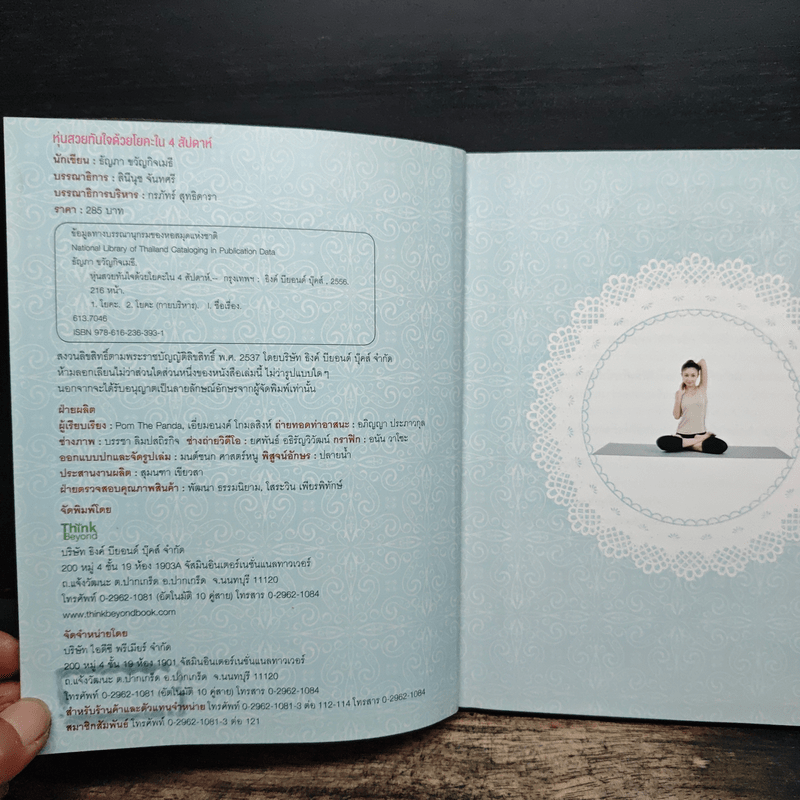 หุ่นสวยทันใจด้วยโยคะใน 4 สัปดาห์
นักเขียน : ธัญภา ขวัญกิจเมธี
บรรณาธิการ : สินีนุช จันทศรี
บรรณาธิการบริหาร : กรภัทร์ สุทธิดารา
ราคา : 285 บาท
ข้อมูลทางบรรณานุกรมของหอสมุดแห่งชาติ
National Library of Thailand Cataloging in Publication Data
ธัญภา ขวัญกิจเมธี.
หุ่นสวยทันใจด้วยโยคะใน 4 สัปดาห์.-- กรุงเทพฯ : ธิงค์ บียอนด์ บุ๊คส์, 2556.
216 หน้า.
1. โยคะ. 2. โยคะ (กายบริหาร). I. ชื่อเรื่อง.
613.7046
ISBN 978-616-236-393-1
สงวนลิขสิทธิ์ตามพระราชบัญญัติลิขสิทธิ์ พ.ศ. 2537 โดยบริษัท ธิงค์ บียอนด์ บุ๊คส์ จำกัด
ห้ามลอกเลียนไม่ว่าส่วนใดส่วนหนึ่งของหนังสือเล่มนี้ ไม่ว่ารูปแบบใดๆ
นอกจากจะได้รับอนุญาตเป็นลายลักษณ์อักษรจากผู้จัดพิมพ์เท่านั้น
ฝ่ายผลิต
ผู้เรียบเรียง : Pom The Panda, เอี่ยมอนงค์ โกมลสิงห์ ถ่ายทอดท่าอาสนะ : อภิญญา ประภาวกุล
ช่างภาพ : บรรชา ลิมปสถิรกิจ ช่างถ่ายวิดีโอ : ยศพันธ์ อธิรัญวิวัฒน์ กราฟิก : อนัน วาโซะ
ออกแบบปกและจัดรูปเล่ม : มนต์ชนก ศาสตร์หนู พิสูจน์อักษร : ปลายน้ำ
ประสานงานผลิต : สุมนฑา เขียวสา
ฝ่ายตรวจสอบคุณภาพสินค้า : พัฒนา ธรรมนิยาม, ไสระวิน เพียรพิทักษ์
จัดพิมพ์โดย
Think
Beyond
บริษัท ธิงค์ บียอนด์ บุ๊คส์ จำกัด
200 หมู่ 4 ชั้น 19 ห้อง 1903A จัสมินอินเตอร์เนชั่นแนลทาวเวอร์
ถ.แจ้งวัฒนะ ต.ปากเกร็ด อ.ปากเกร็ด จ.นนทบุรี 11120
โทรศัพท์ 0-2962-1081 (อัตโนมัติ 10 คู่สาย) โทรสาร 0-2962-1084
www.thinkbeyondbook.com
จัดจำหน่ายโดย
บริษัท ไอดีซี พรีเมียร์ จำกัด
200 หมู่ 4 ชั้น 19 ห้อง 1901 จัสมินอินเตอร์เนชั่นแนลทาวเวอร์
ถ.แจ้งวัฒนะ ต.ปากเกร็ด อ.ปากเกร็ด จ.นนทบุรี 11120
โทรศัพท์ 0-2962-1081 (อัตโนมัติ 10 คู่สาย) โทรสาร 0-2962-1084
สำหรับร้านค้าและตัวแทนจำหน่าย โทรศัพท์ 0-2962-1081-3 ต่อ 112-114 โทรสาร 0-2962-1084
สมาชิกสัมพันธ์ โทรศัพท์ 0-2962-1081-3 ต่อ 121